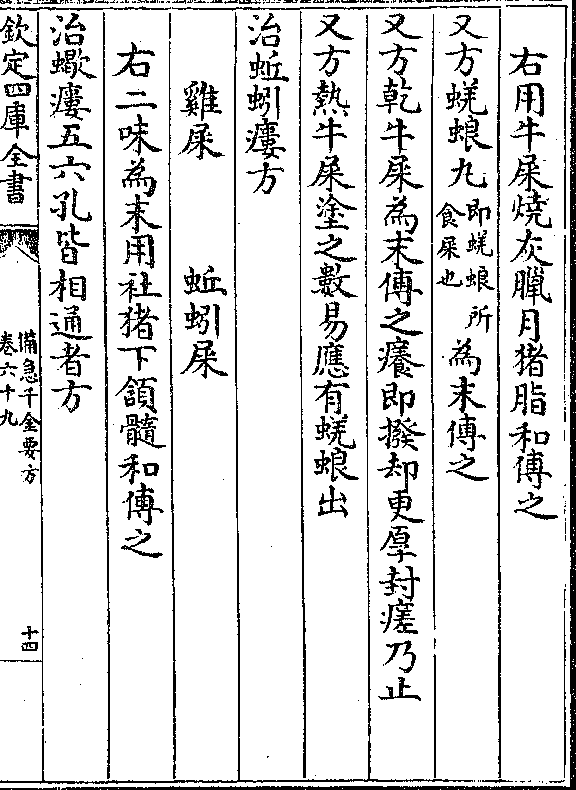 右用牛屎燒灰臘月猪脂和傅之
又方蜣蜋丸即蜣蜋所食屎也為末傅之
又方乾牛屎為末傅之癢即撥却更厚封瘥乃止
又方熱牛屎塗之數易應有蜣蜋出
治蚯蚓瘻方
雞屎　蚯蚓屎
右二味為末用社猪下頷髓和傅之
治蠍瘻五六孔皆相通者方
欽定四庫全書
備急千金要方
卷六十九
十四